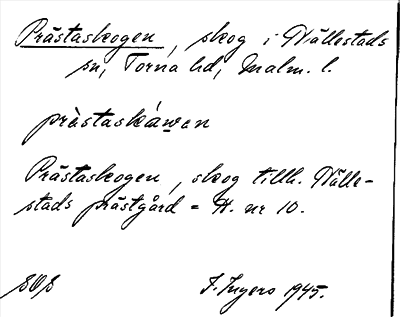 Prästaskogen, skog i Vällestads
sn, Torna hd, Malm. l.
prästaskáwen
Prästaskogen, skog tillh. Välle-
stads prästgård = H. nr 10.
SOS I. Ingers 1945.